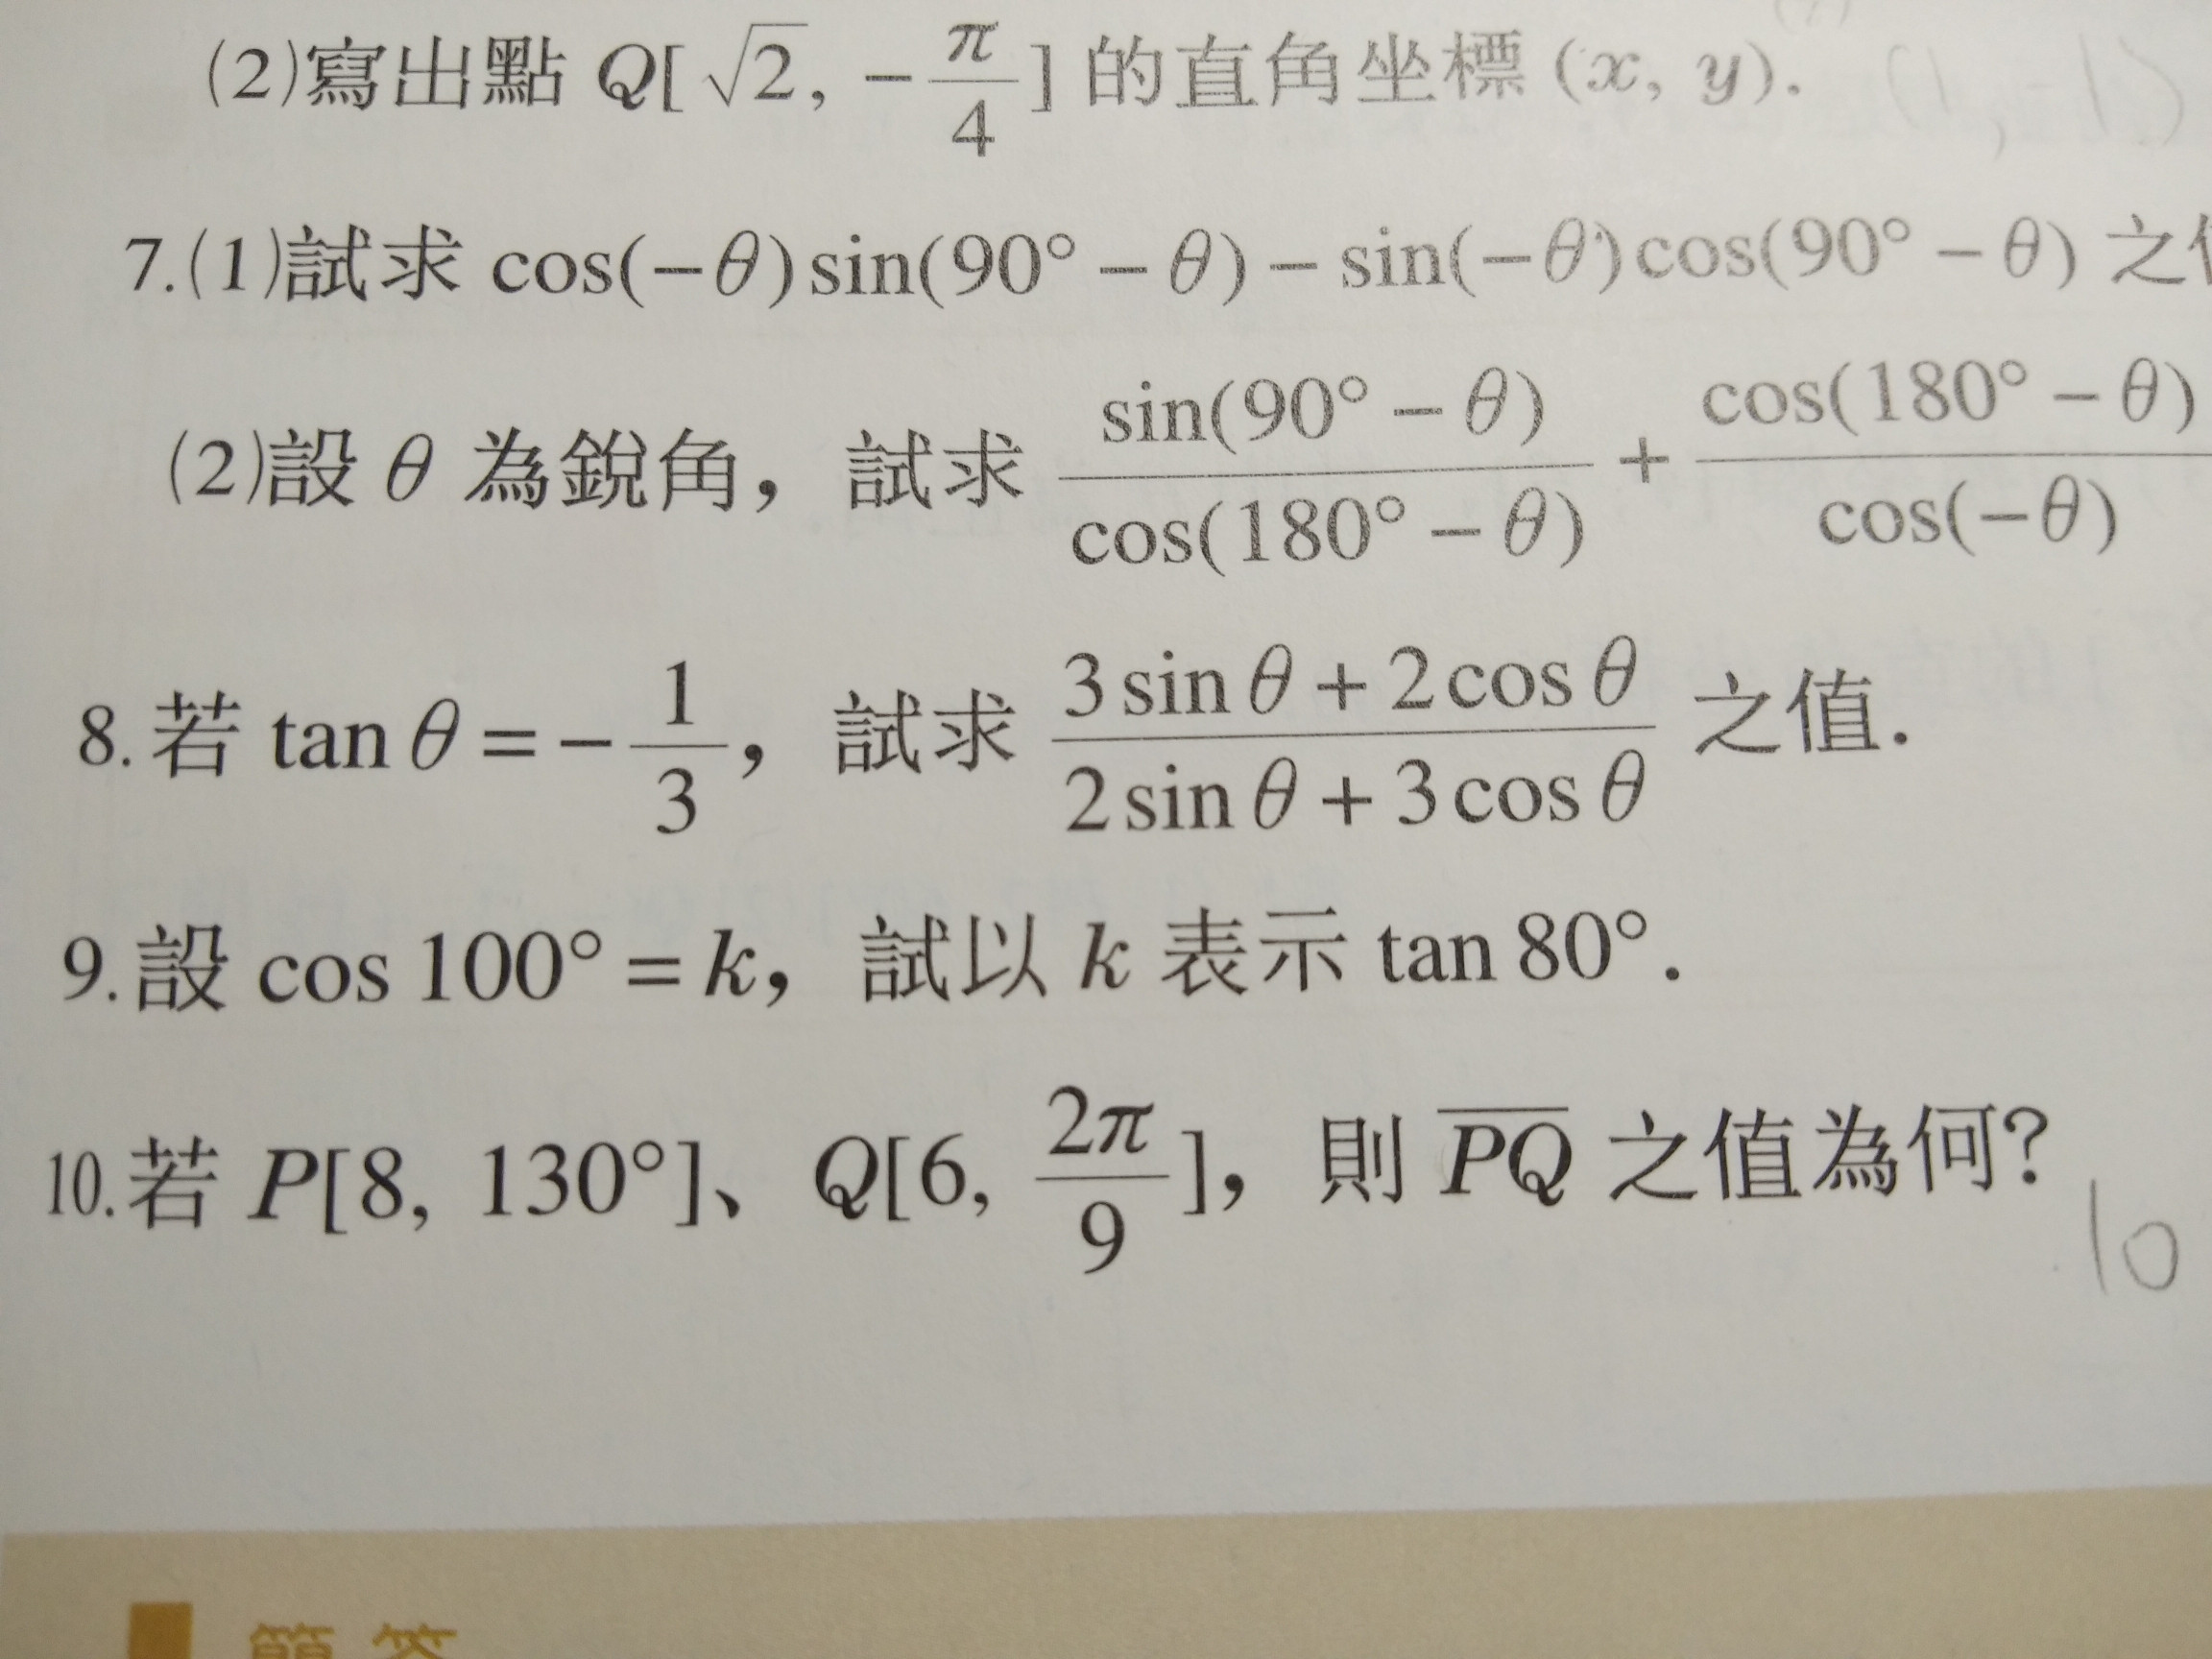 (2)寫出點 Q[√2, −π/4] 的直角坐標 (x, y). (1, −1)
7.(1)試求 cos(−θ)sin(90° − θ) − sin(−θ)cos(90° − θ) 之
(2)設 θ 為銳角，試求 sin(90° − θ)/cos(180° − θ) + cos(180° − θ)/cos(−θ)
8. 若 tan θ = −1/3，試求 (3 sin θ + 2 cos θ)/(2 sin θ + 3 cos θ) 之值.
9. 設 cos 100° = k，試以 k 表示 tan 80°.
10. 若 P[8, 130°]、Q[6, 2π/9]，則 P̅Q̅ 之值為何?
10
簡答